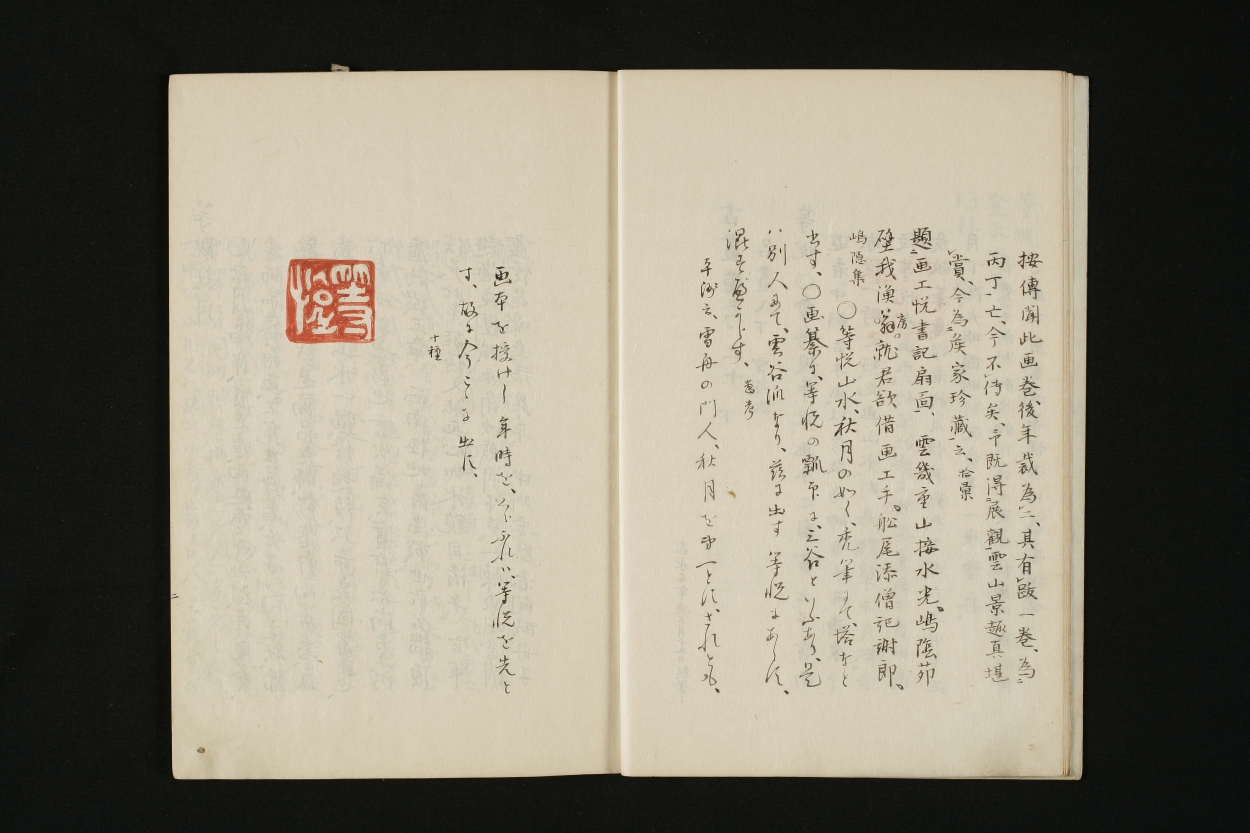 按傳聞此画巻、後年裁為二、其有跋一巻、為
丙丁亡、今不傳矣、予既得展觀、雲山景趣真堪
賞、今為侯家珍藏云、拾彙
題画工悦書記扇面、雲幾重山接水光、嶋陰茆
壁我漁翁房。就君欲借画工手。舩尾添僧記謝郎。
嶋隠集 〇等悦山水、秋月の如く、禿筆にて、塔など
出す、〇画纂に、等悦の瓢印に、三谷といふあり、是
ハ別人にて、雲谷派なり、茲に出す等悦にあらず、
混ずべからず、
平洲云、雪舟の門人、秋月を第一とす、されども、
画本を授けし年時を、いふ之れハ、等悦を先と
す、故に今ここに出す、
十種
等悦